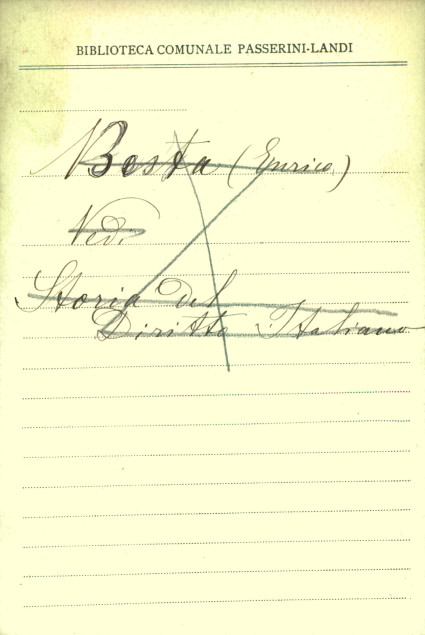 BIBLIOTECA COMUNALE PASSERINI-LANDI
Besta (Enrico)
Vedi
Storia del
Diritto Italiano